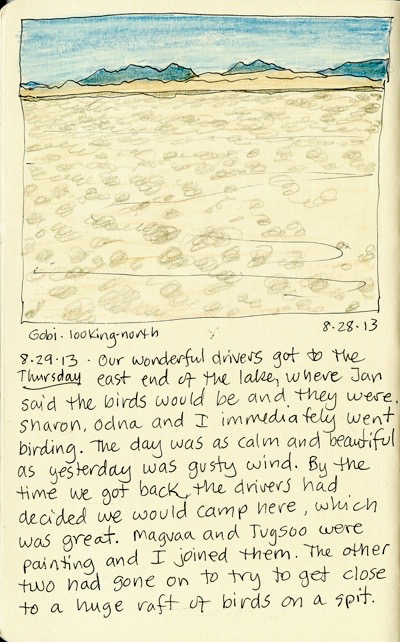 Gobi. looking north
8.28.13
8.29.13. Our wonderful drivers got to the
Thursday east end of the lake, where Jan
said the birds would be and they were.
Sharon, Odna and I immediately went
birding. The day was as calm and beautiful
as yesterday was gusty wind. By the
time we got back, the drivers had
decided we would camp here, which
was great. Magvaa and Tugsoo were
painting and I joined them. The other
two had gone on to try to get close
to a huge raft of birds on a spit.